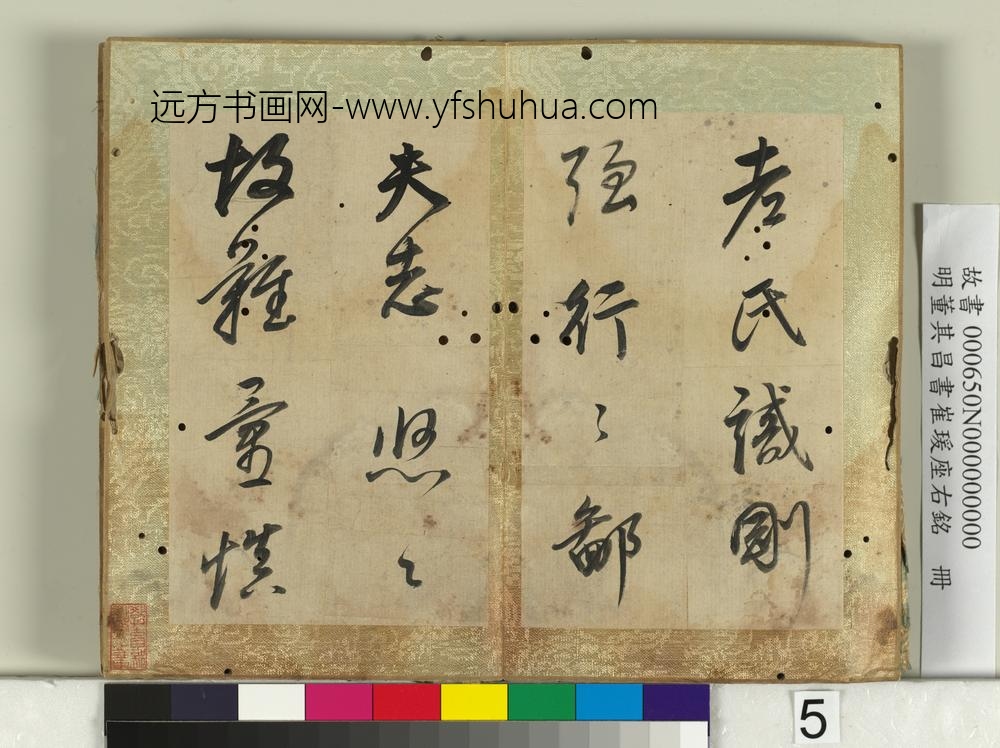 远方书画网-www.yfshuhua.com
老氏誡剛
強行〻鄙
夫志悠〻
故難量慎
故書 000650N000000000
明董其昌書崔瑗座右銘 冊
5